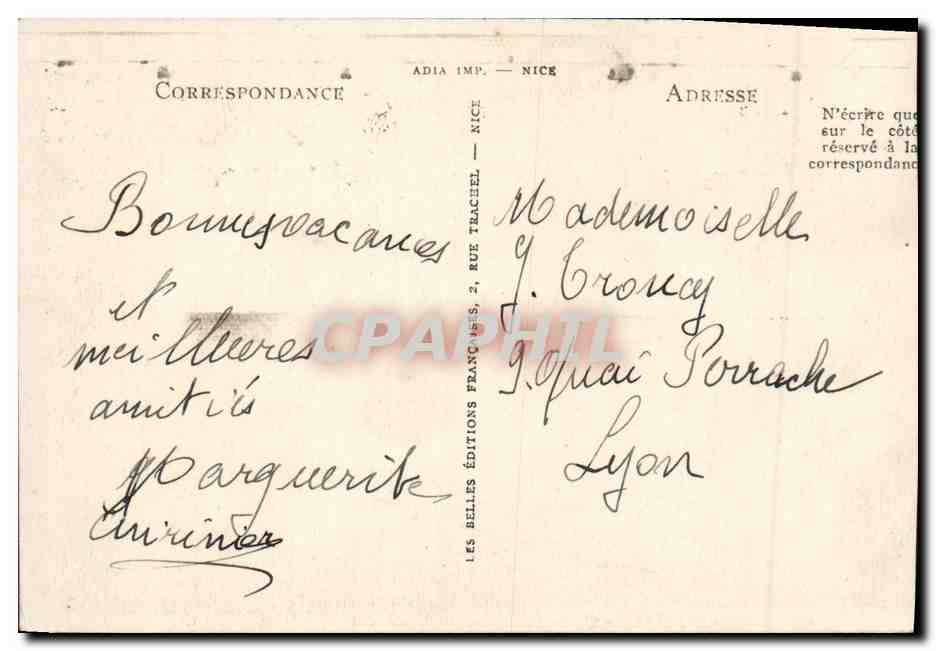 ADIA IMP. — NICE
CORRESPONDANCE
ADRESSE
N'écrire que
sur le côté
réservé à la
correspondanc
LES BELLES ÉDITIONS FRANÇAISES, 2, RUE TRACHEL — NICE
Bonnes vacances
et
meilleures
amitiés
Marguerite
Mademoiselle
J. Troncy
9. Quai Perrache
Lyon
CPAPHIL